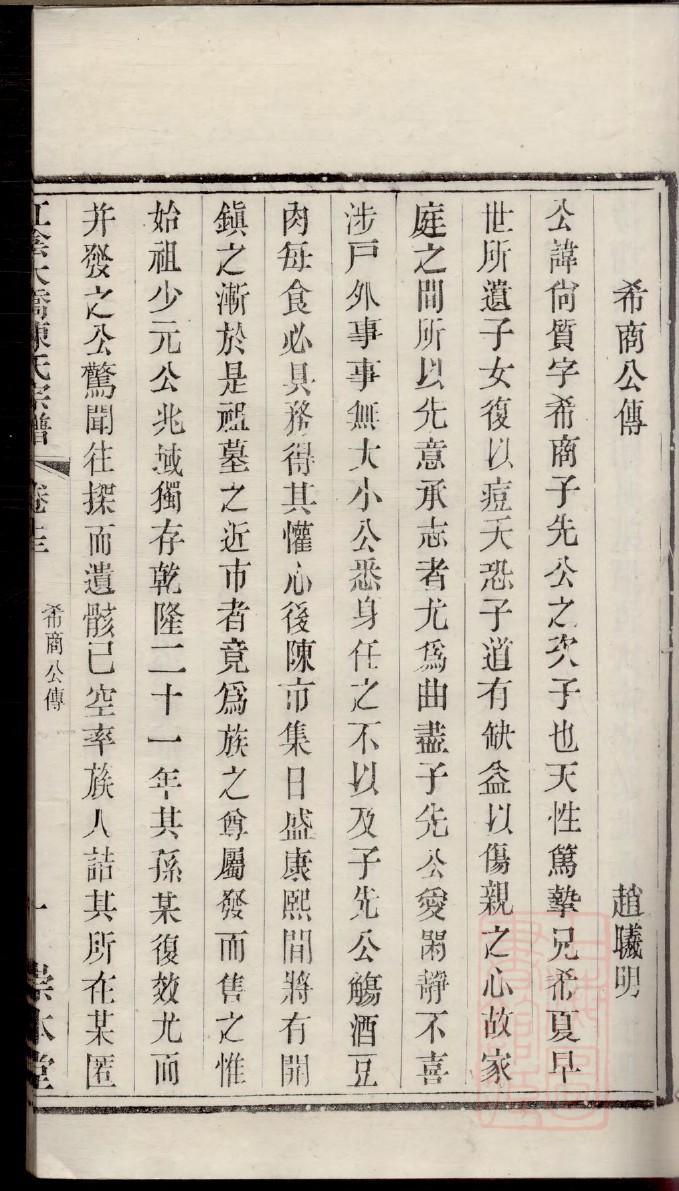 希商公傳 趙曦明
公諱尙質字希商子先公之次子也天性篤摯兄希夏早
世所遺子女復以痘夭恐子道有缺益以傷親之心故家
庭之間所以先意承志者尤爲曲盡子先公愛閑靜不喜
涉戶外事事無大小公悉身任之不以及子先公觴酒豆
肉每食必具務得其懽心後陳市集日盛康熙間將有開
鎭之漸於是祖墓之近市者竟爲族之尊屬發而售之惟
始祖少元公兆域獨存乾隆二十一年其孫某復效尤而
并發之公驚聞往探而遺骸已空率族人詰其所在某匿
江陰大橋陳氏宗譜 卷十三 希商公傳 一 崇本堂